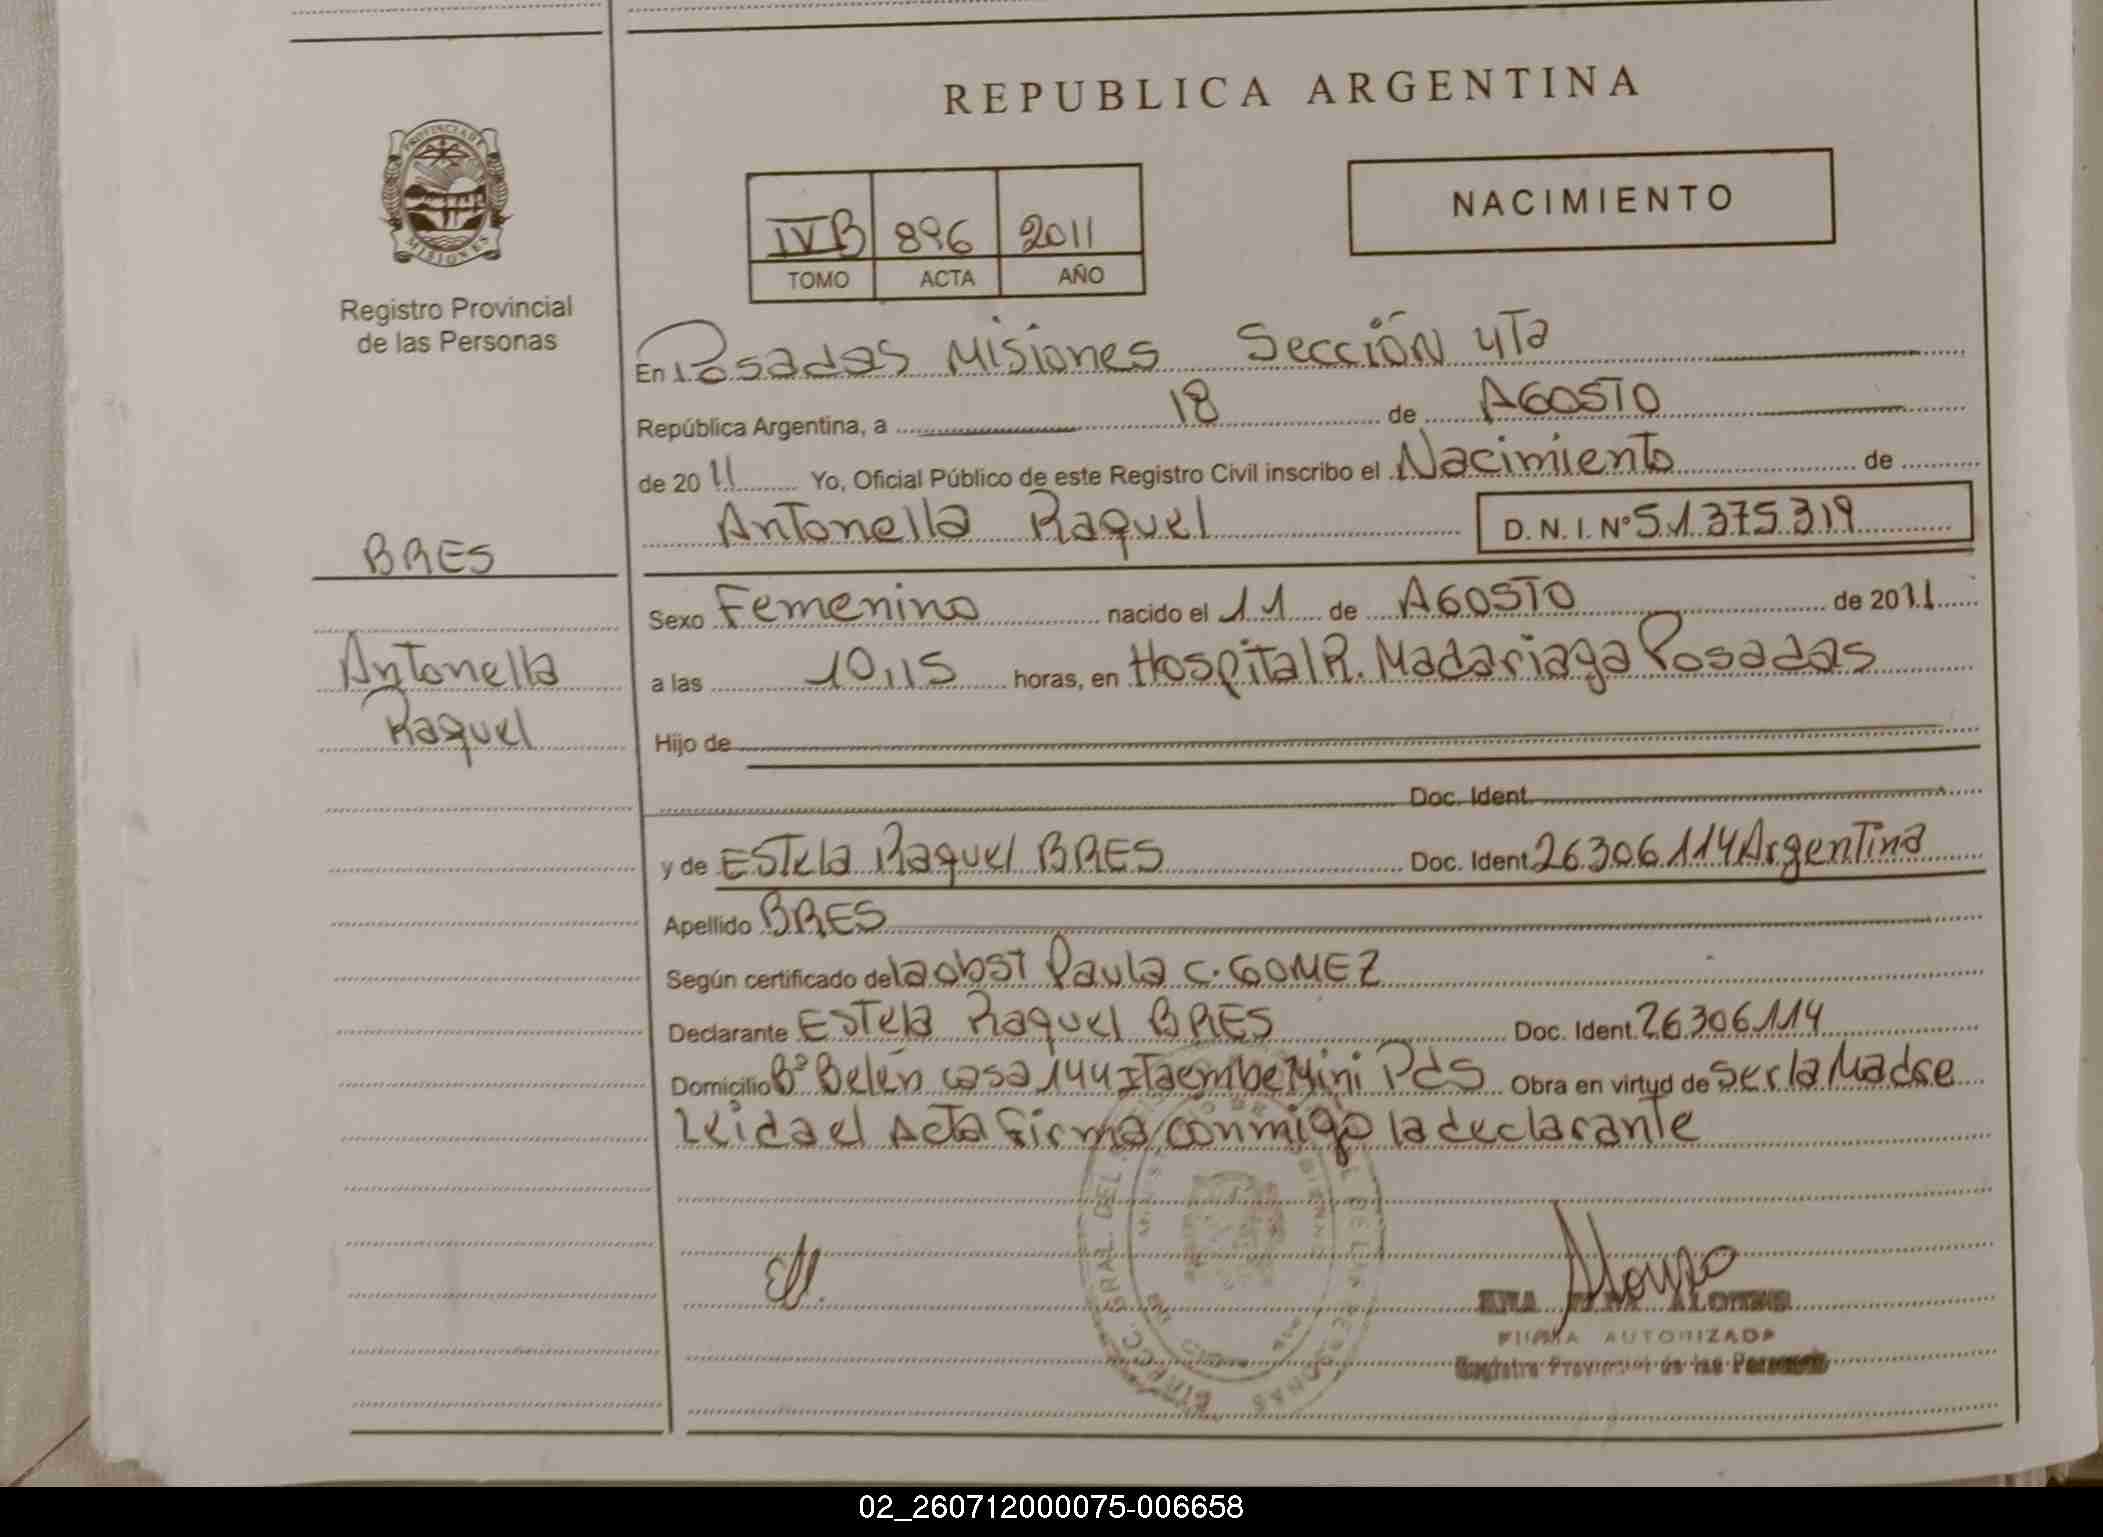 REPUBLICA ARGENTINA
PROVINCIA DE
MISIONES
Registro Provincial
de las Personas
IVB 896 2011
TOMO ACTA AÑO
NACIMIENTO
En Posadas Misiones Sección 4ta
República Argentina, a 18 de AGOSTO
de 2011 Yo, Oficial Público de este Registro Civil inscribo el Nacimiento de
Antonella Raquel D. N. I. Nº 51.375.319
BRES
Antonella
Raquel
Sexo Femenino nacido el 11 de AGOSTO de 2011
a las 10,15 horas, en Hospital R. Madariaga Posadas
Hijo de
Doc. Ident.
y de Estela Raquel BRES Doc. Ident. 26.306.114 Argentina
Apellido BRES
Según certificado de la obst Paula C. GOMEZ
Declarante Estela Raquel BRES Doc. Ident. 26.306.114
Domicilio Bº Belén casa 144 Itaembe Mini Pds Obra en virtud de ser la Madre
Leida el Acta firma conmigo la declarante
FIRMA AUTORIZADA
Registro Provincial de las Personas
02_260712000075-006658